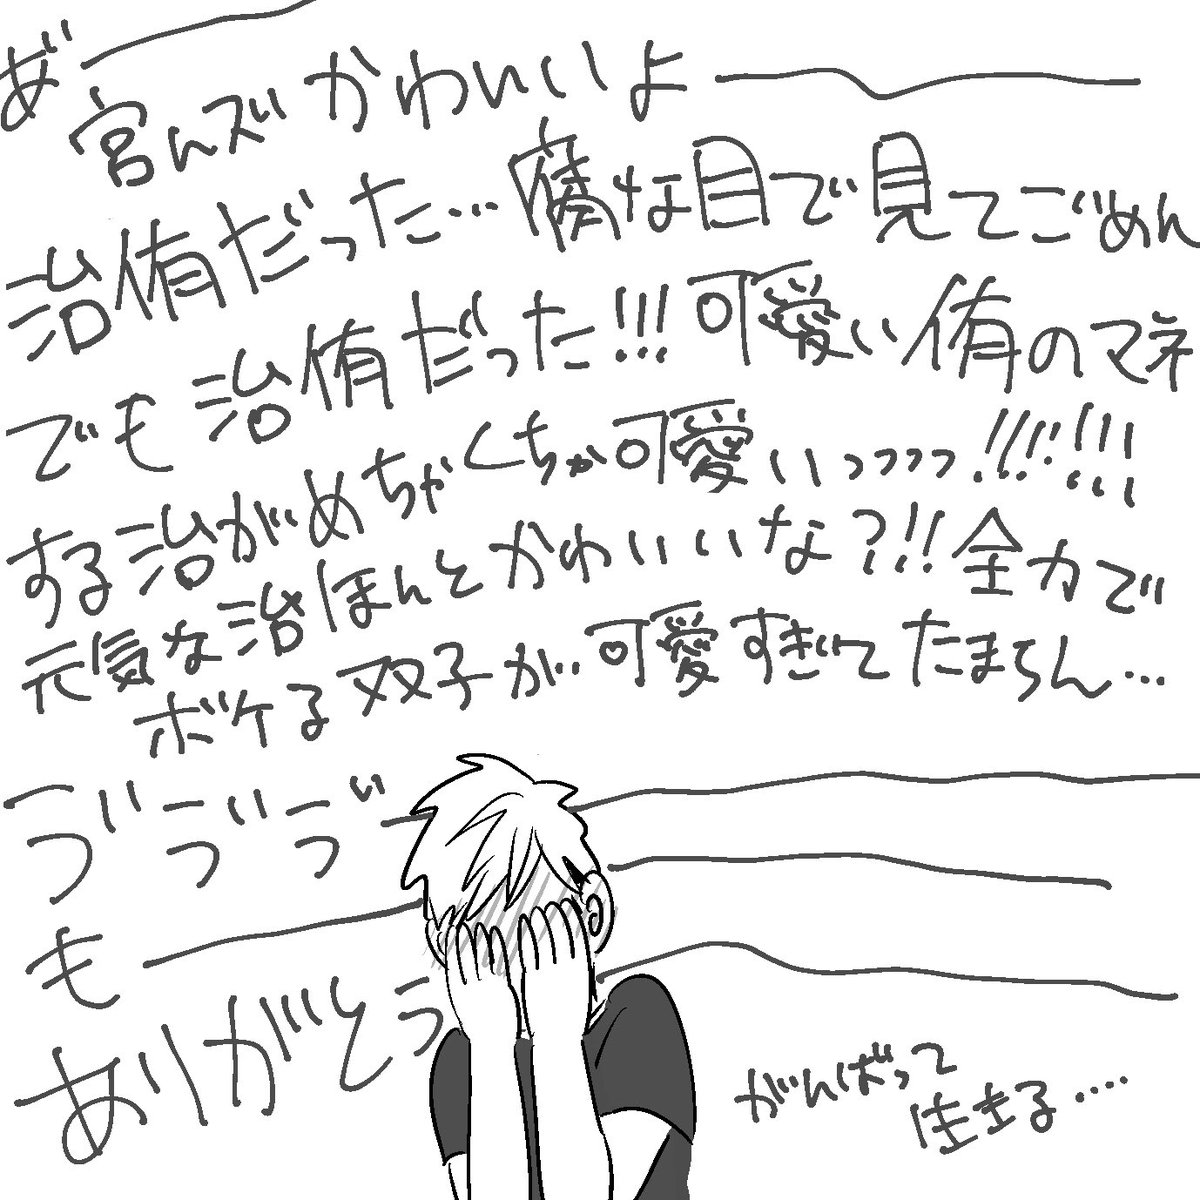 あ゛ーー
宮んズかわいいよーー
治侑だった…腐な目で見てごめん
でも治侑だった!!!可愛い侑のマネ
する治がめちゃくちゃ可愛いっっっっ!!!!!!
元気な治ほんとかわいいな?!!全力で
ボケる双子が可愛すぎいてたまらん…
ゔゔゔーー
もーー
ありがとうーー
がんばって
生きる….